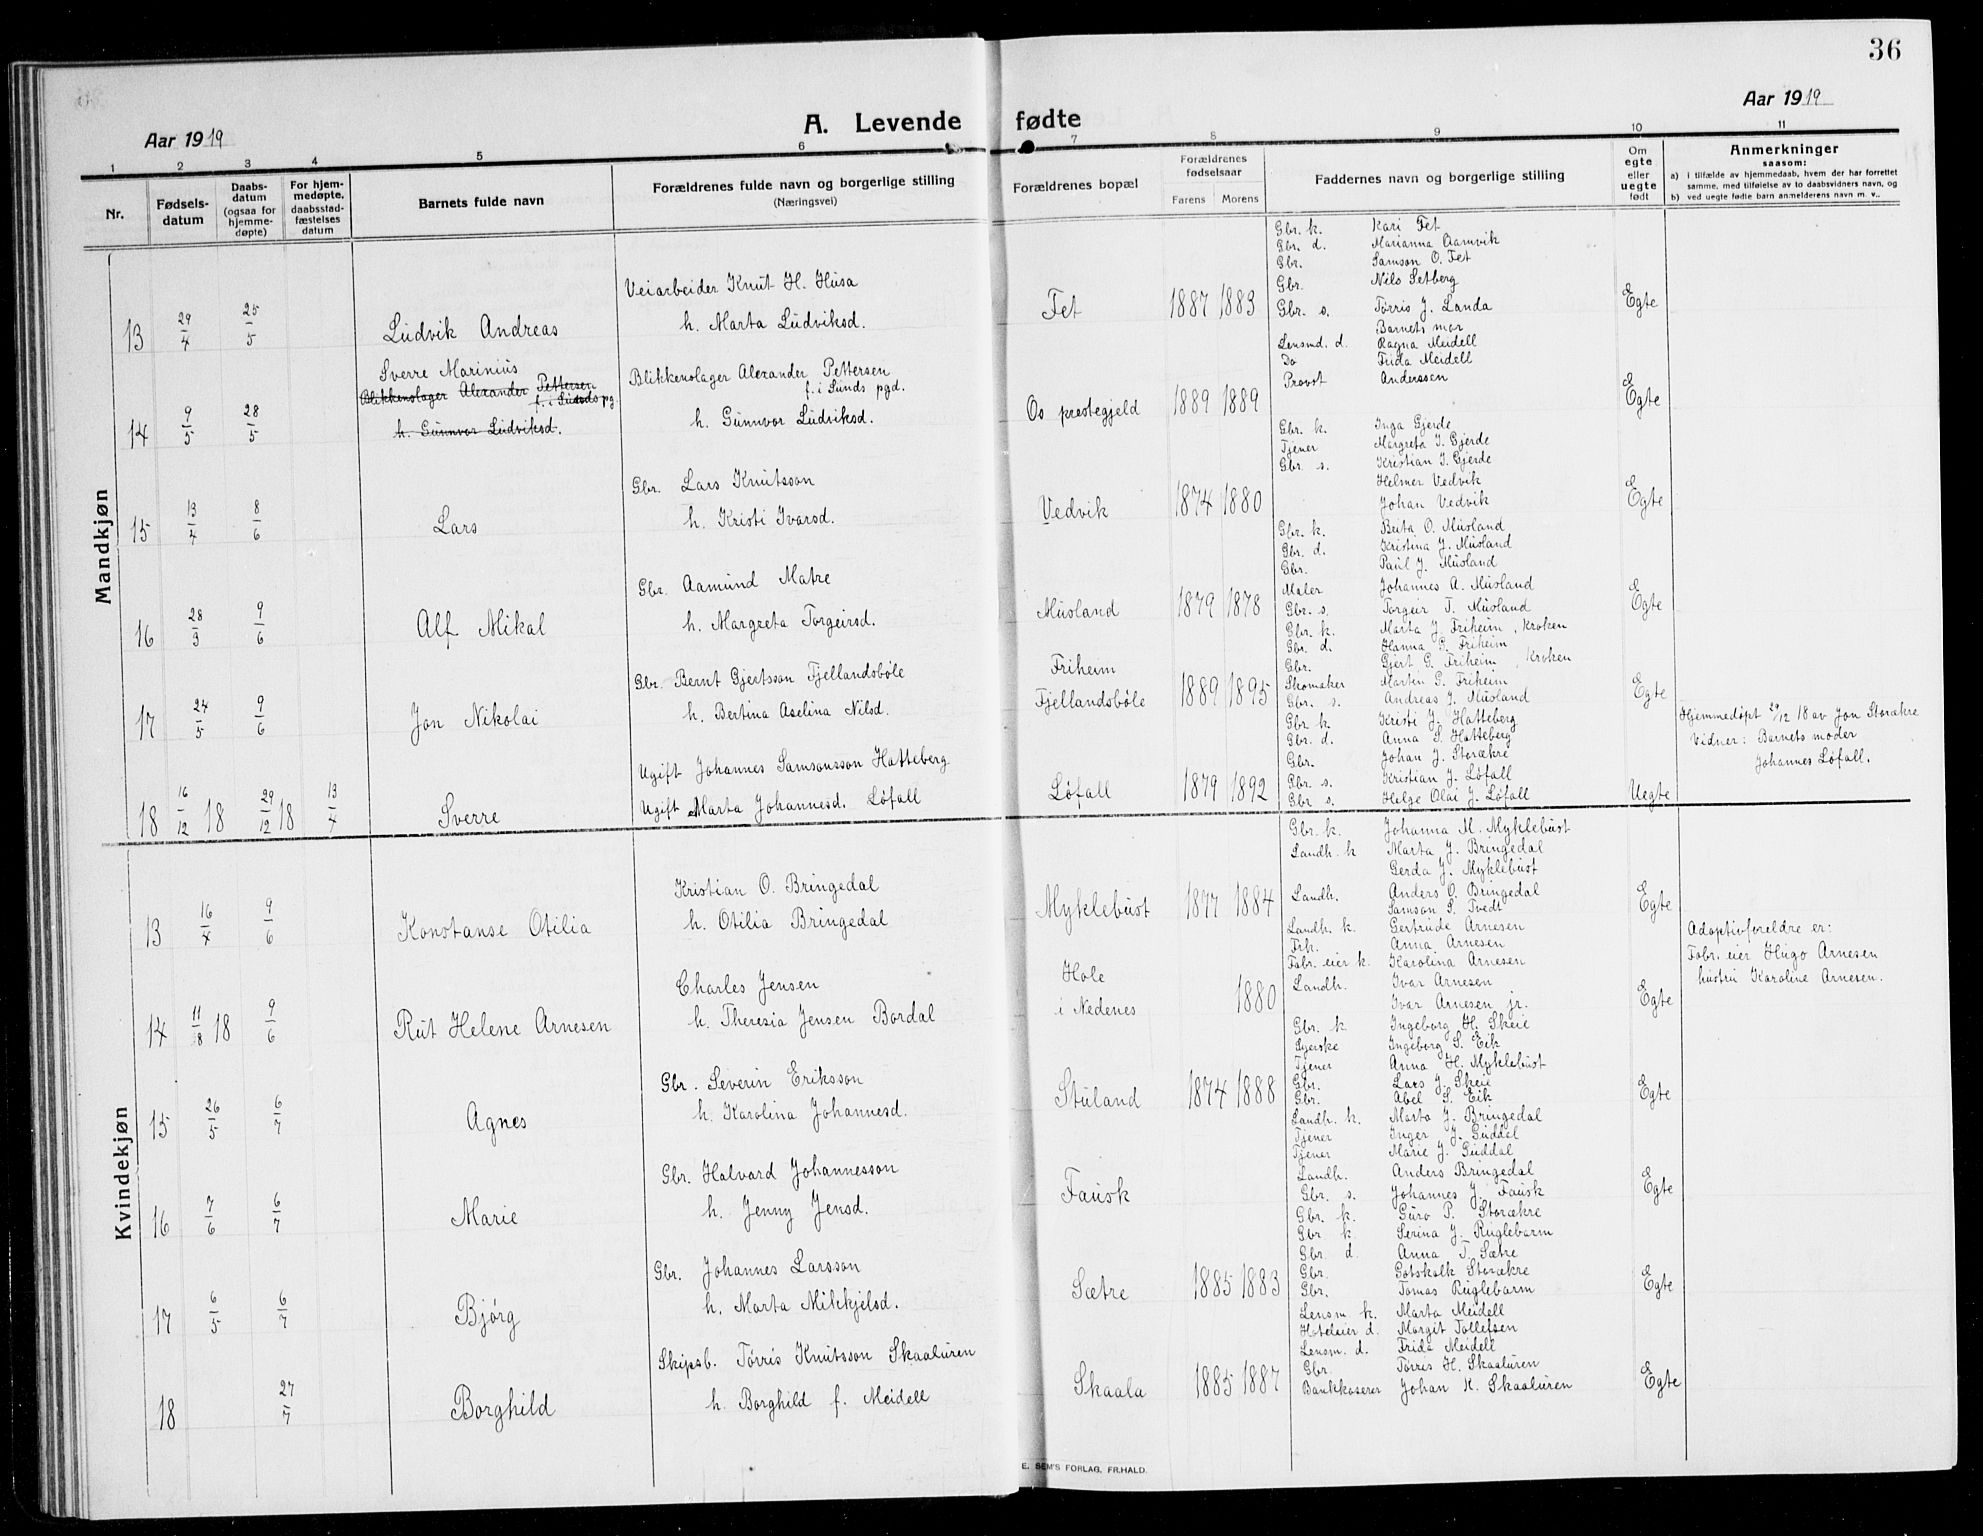 36
A. Levende fødte
Aar 1919
Aar 1919
1 2 3 4 5 6 7 8 9 10 11
Nr.
Fødsels-
datum
Daabs-
datum
(ogsaa for
hjemme-
døpte)
For hjem-
medøpte,
daabsstad-
fæstelses
datum
Barnets fulde navn
Forældrenes fulde navn og borgerlige stilling
(Næringsvei)
Forældrenes bopæl
Forældrenes
fødselsaar
Farens Morens
Faddernes navn og borgerlige stilling
Om
egte
eller
uegte
født
Anmerkninger
saasom:
a) i tilfælde av hjemmedaab, hvem der har forrettet
samme, med tilføielse av to daabsvidners navn, og
b) ved uegte fødte barn anmelderens navn m. v..
Mandkjøn
13 29/4 25/5 Ludvik Andreas
Veiarbeider Knut H. Husa
h. Marta Ludviksd.
Fet 1887 1883
Gbr. k. Kari Fet
Gbr. d. Marianna Aamvik
Gbr. Samson O. Fet
Gbr. Nils Setberg
Gbr. s. Tørris J. Landa
Egte
14 9/5 28/5
Sverre Marinius
Blikkenslager Alexander Pettersen
f. i Sunds pg.
h. Gunnvor Ludviksd.
Blikkenslager Alexander Pettersen
f. i Sunds pgd.
h. Gunnvor Ludviksd.
Os prestegjeld 1889 1889
Barnets mor
Lensmd. d. Ragna Meidell
Do Frida Meidell
Provst Anderssen
Egte
15 13/4 8/6 Lars
Gbr. Lars Knutsson
h. Kristi Ivarsd.
Vedvik 1874 1880
Gbr. k. Inga Gjerde
Tjener Margreta I. Gjerde
Gbr. s. Kristian I. Gjerde
Helmer Vedvik
Johan Vedvik
Egte
16 28/3 9/6 Alf Mikal
Gbr. Aamund Matre
h. Margreta Torgeirsd.
Musland 1879 1878
Gbr. k. Brita O. Musland
Gbr. d. Kristina J. Musland
Gbr. Paul J. Musland
Maler Johannes A. Musland
Gbr. s. Torgeir T. Musland
Egte
17 24/5 9/6 Jon Nikolai
Gbr. Bernt Gjertsson Fjellandsbøle
h. Bertina Aselina Nilsd.
Friheim
Fjellandsbøle 1889 1895
Gbr. k. Marta J. Friheim, Kroken
Gbr. d. Hanna G. Friheim
Gbr. Gjert G. Friheim, Kroken
Skomaker Martin G. Friheim
Gbr. s. Andreas J. Musland
Egte
18 16/12 18 29/12 18 13/4 Sverre
Ugift Johannes Samsonsson Hatteberg
Ugift Marta Johannesd. Løfall
Løfall 1879 1892
Gbr. k. Kristi J. Hatteberg
Gbr. d. Anna S. Hatteberg
Gbr. Johan J. Storækre
Gbr. s. Kristian J. Løfall
Gbr s. Helge Olai J. Løfall
Uegte
Hjemmedøpt 29/12 18 av Jon Storækre
Vidner: Barnets moder
Johannes Løfall.
Kvindekjøn
13 16/4 9/6 Konstanse Otilia
Kristian O. Bringedal
h. Otilia Bringedal
Myklebust 1877 1884
Gbr. k. Johanna M. Myklebust
Landh. k Marta J. Bringedal
Gerda J. Myklebust
Landh. Anders O. Bringedal
Samson S. Tvedt
Egte
14 11/8 18 9/6 Rut Helene Arnesen
Charles Jensen
h. Theresia Jensen Bordal
Hole
i Nedenes 1880
Landh. k. Gertrude Arnesen
Frk. Anna Arnesen
Fabr. eier k. Karolina Arnesen
Landh. Ivar Arnesen
Ivar Arnesen jr.
Egte
Adoptivforeldre er:
Fabr. eier Hugo Arnesen
hustru Karoline Arnesen.
15 26/5 6/7 Agnes
Gbr. Severin Eriksson
h. Karolina Johannesd.
Stuland 1874 1888
Gbr. k Ingeborg H. Skeie
Syerske Ingeborg S. Eik
Tjener Anna H. Myklebust
Gbr. Lars J. Skeie
Gbr. Abel S. Eik
Egte
16 7/6 6/7 Marie
Gbr. Halvard Johannesson
h. Jenny Jensd.
Fausk
Landh. k. Marta J. Bringedal
Tjener Inger J. Guddal
Tjener Marie J. Guddal
Landh. Anders Bringedal
Gbr. s. Johannes J. Fausk
Egte
17 6/5 6/7 Bjørg
Gbr. Johannes Larsson
h. Marta Mikkjelsd.
Sætre 1885 1883
Gbr. k. Guro P. Storækre
Gbr k. Serina J. Ruglebarm
Gbr d. Anna T. Sætre
Gbr. Gotskalk Storækre
Gbr. Tomas Ruglebarm
Egte
18 27/7 Borghild
Skipsb. Tørris Knutsson Skaaluren
h. Borghild f. Meidell
Skaala 1885 1887
Lensm k. Marta Meidell
Hoteleier d. Margit Tollefsen
Lensm. d. Frida Meidell
Gbr. Tørris H. Skaaluren
Bankkaserer Johan K. Skaaluren
Egte
E. SEM'S FORLAG, FR.HALD.